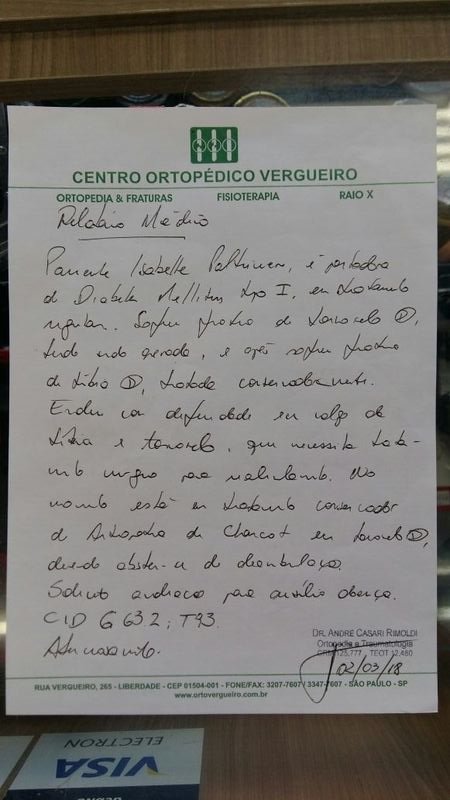 CENTRO ORTOPÉDICO VERGUEIRO
ORTOPEDIA & FRATURAS FISIOTERAPIA RAIO X
Relatório Médico
Paciente Isabelle é portadora
de Diabete Mellitus tipo I, em tratamento
regular. Sofreu fratura de tornozelo D,
tendo sido operada, e após sofreu fratura
de tíbia D, tratada conservadoramente.
Evoluiu com deformidade em valgo de
tíbia e tornozelo, que necessita trata-
mento para No
momento está em tratamento conservador
de Artropatia de Charcot em tornozelo D,
devendo abster-se de deambulação.
Solicito avaliação para auxílio doença.
CID G 63.2; T93.
Atenciosamente.
DR. ANDRÉ CASARI RIMOLDI
Ortopedia e Traumatologia
CRM 125.777 - TEOT 12.480
02/03/18
RUA VERGUEIRO, 265 - LIBERDADE - CEP 01504-001 - FONE/FAX: 3207-7607 / 3347-7607 - SÃO PAULO - SP
www.ortovergueiro.com.br
VISA
ELECTRON